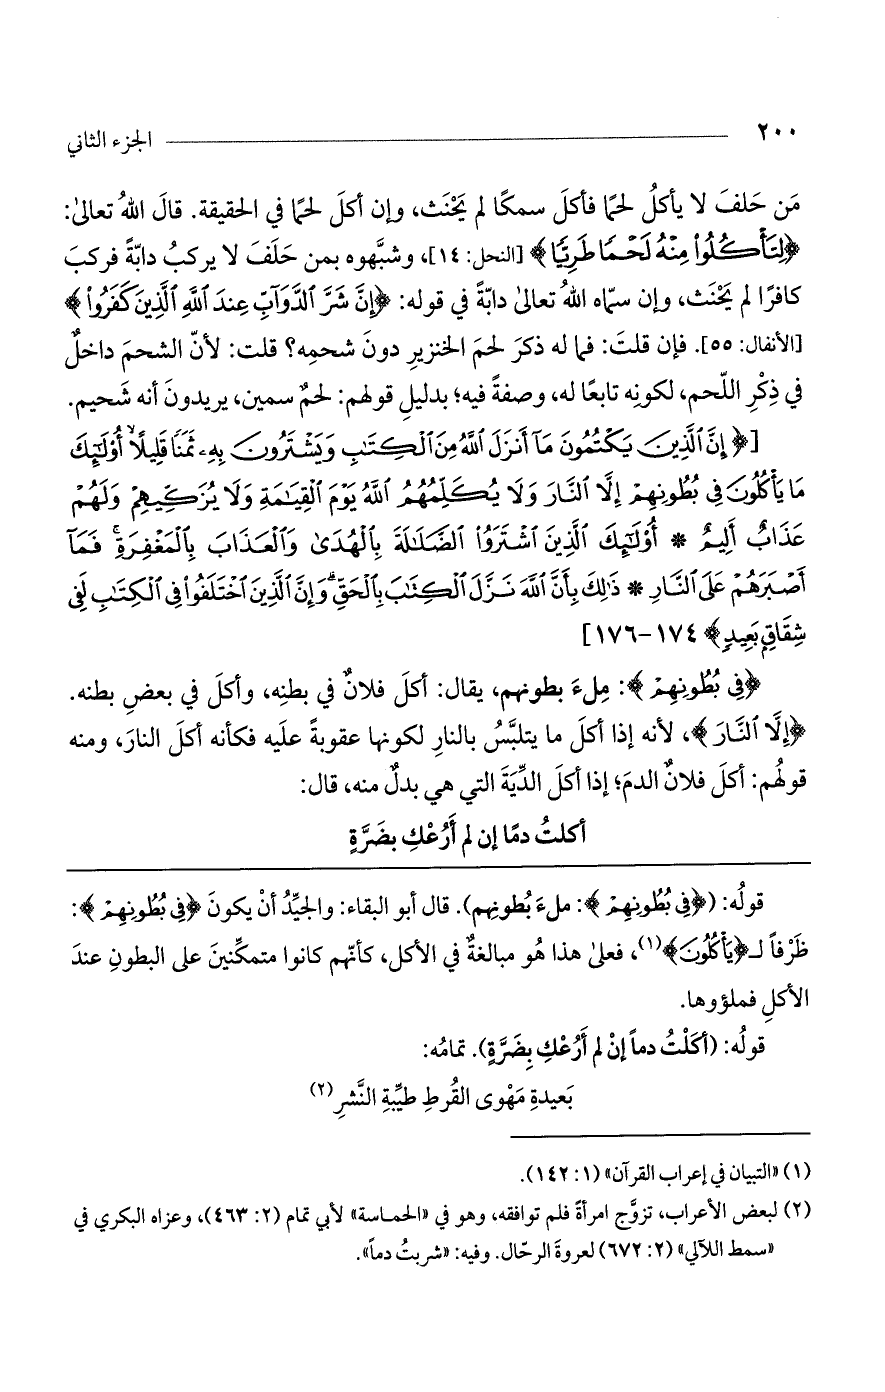 ٢٠٠ ـــــــــــــــــــــ الجزء الثاني
مَن حَلفَ لا يأكلُ لحمًا فأكلَ سمكًا لم يَحْنَث، وإن أكلَ لحمًا في الحقيقة. قالَ اللهُ تعالىٰ:
﴿لِتَأْكُلُوا۟ مِنْهُ لَحْمًا طَرِيًّا﴾ [النحل: ١٤]، وشبَّهوه بمن حَلَفَ لا يركبُ دابّةً فركبَ
كافرًا لم يَحْنَث، وإن سمّاه اللهُ تعالىٰ دابّةً في قوله: ﴿إِنَّ شَرَّ ٱلدَّوَآبِّ عِندَ ٱللَّهِ ٱلَّذِينَ كَفَرُوا۟﴾
[الأنفال: ٥٥]. فإن قلتَ: فما له ذكرَ لحمَ الخنزيرِ دونَ شحمِه؟ قلت: لأنّ الشحمَ داخلٌ
في ذِكْرِ اللّحم، لكونِه تابعًا له، وصفةً فيه؛ بدليلِ قولهم: لحمٌ سمين، يريدونَ أنه شَحيم.
[﴿إِنَّ ٱلَّذِينَ يَكْتُمُونَ مَآ أَنزَلَ ٱللَّهُ مِنَ ٱلْكِتَٰبِ وَيَشْتَرُونَ بِهِۦ ثَمَنًا قَلِيلًاۙ أُو۟لَٰٓئِكَ
مَا يَأْكُلُونَ فِى بُطُونِهِمْ إِلَّا ٱلنَّارَ وَلَا يُكَلِّمُهُمُ ٱللَّهُ يَوْمَ ٱلْقِيَٰمَةِ وَلَا يُزَكِّيهِمْ وَلَهُمْ
عَذَابٌ أَلِيمٌ * أُو۟لَٰٓئِكَ ٱلَّذِينَ ٱشْتَرَوُا۟ ٱلضَّلَٰلَةَ بِٱلْهُدَىٰ وَٱلْعَذَابَ بِٱلْمَغْفِرَةِۚ فَمَآ
أَصْبَرَهُمْ عَلَى ٱلنَّارِ * ذَٰلِكَ بِأَنَّ ٱللَّهَ نَزَّلَ ٱلْكِتَٰبَ بِٱلْحَقِّۗ وَإِنَّ ٱلَّذِينَ ٱخْتَلَفُوا۟ فِى ٱلْكِتَٰبِ لَفِى
شِقَاقٍۭ بَعِيدٍ﴾ ١٧٤-١٧٦]
﴿فِى بُطُونِهِمْ﴾: مِلءَ بطونهم، يقال: أكلَ فلانٌ في بطنِه، وأكلَ في بعضِ بطنه.
﴿إِلَّا ٱلنَّارَ﴾، لأنه إذا أكلَ ما يتلبَّسُ بالنارِ لكونها عقوبةً عليه فكأنه أكلَ النارَ، ومنه
قولُهم: أكلَ فلانٌ الدمَ؛ إذا أكلَ الدِّيَةَ التي هي بدلٌ منه، قال:
أكلتُ دمًا إن لم أَرُعْكِ بضَرَّةٍ
قولُه: (﴿فِى بُطُونِهِمْ﴾: ملءَ بُطونِهم). قال أبو البقاء: والجيِّدُ أنْ يكونَ ﴿فِى بُطُونِهِمْ﴾:
ظَرْفاً لـ﴿يَأْكُلُونَ﴾(١)، فعلىٰ هذا هُو مبالغةٌ في الأكل، كأنّهم كانوا متمكِّنينَ على البطونِ عندَ
الأكلِ فملؤوها.
قولُه: (أكَلْتُ دماً إنْ لم أَرُعْكِ بِضَرَّةٍ). تمامُه:
بَعيدةِ مَهْوى القُرطِ طيِّبةِ النَّشرِ(٢)
(١) «التبيان في إعراب القرآن» (١: ١٤٢).
(٢) لبعض الأعراب، تزوَّج امرأةً فلم توافقه، وهو في «الحماسة» لأبي تمام (٢: ٤٦٣)، وعزاه البكري في
«سمط اللآلي» (٢: ٦٧٢) لعروةَ الرحّال. وفيه: «شربتُ دماً».